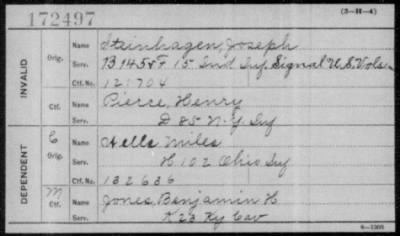 172497 (3-H-4)
INVALID
Orig. Name Steinhagen, Joseph
Serv. B 145 & F 15 Ind Inf, Signal U.S. Vols.
Ctf. No. 12,704
Ctf. Name Pierce, Henry
Serv. D 85 N.Y. Inf
DEPENDENT
C Orig. Name Hells Miles
Serv. H 102 Ohio Inf
Ctf. No. 132636
M Ctf. Name Jones, Benjamin H
Serv. K 23 Ky Cav